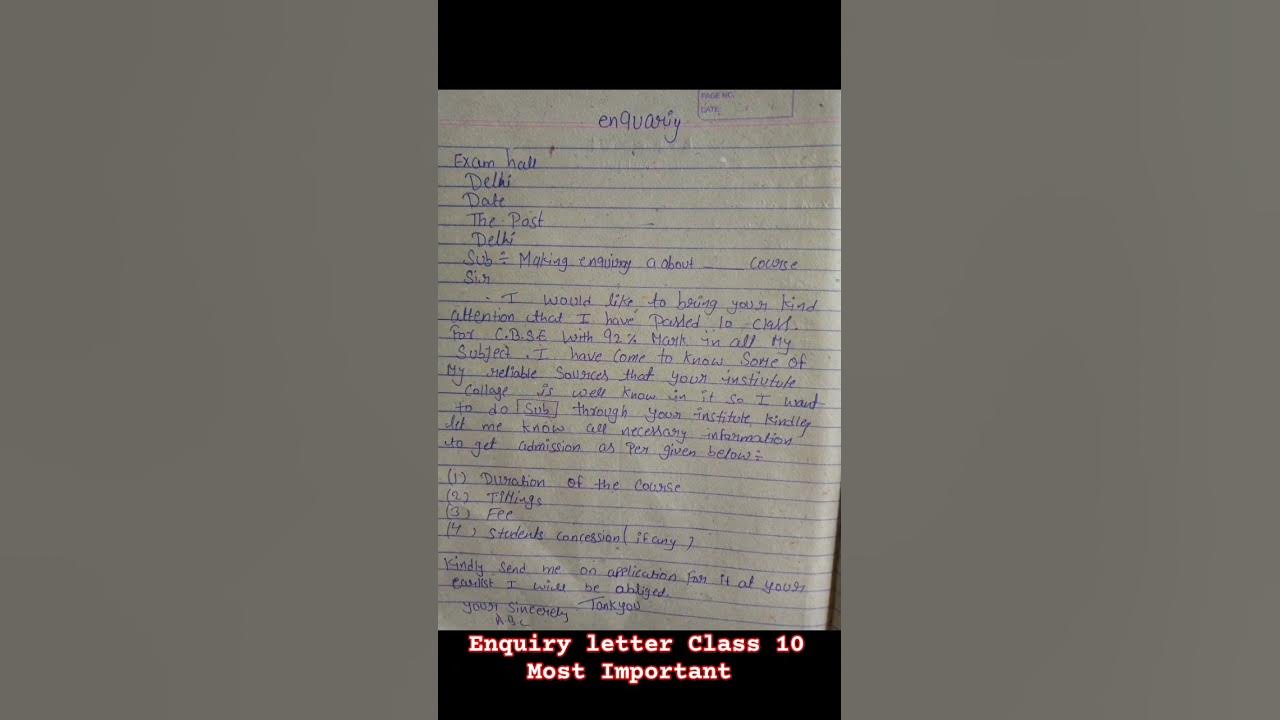 PAGE NO.
DATE
enquariy
Exam hall
Delhi
Date
The Post
Delhi
Sub÷ Making enquiry a about ____ Course
Sir
I would like to bring your kind
attention that I have passed 10 class.
For C.B.S.E with 92% Mark in all My
Subject. I have come to know some of
My reliable sources that your institute
Collage is well know in it so I want
to do Sub through your institute, kindly
let me know all necessary information
to get admission as per given below÷
(1) Duration of the Course
(2) Timings
(3) Fee
(4) Students Concession (if any)
Kindly send me on application for it at your
earlist I will be obliged.
Tankyou
your Sincerely
A B C
Enquiry letter Class 10
Most Important